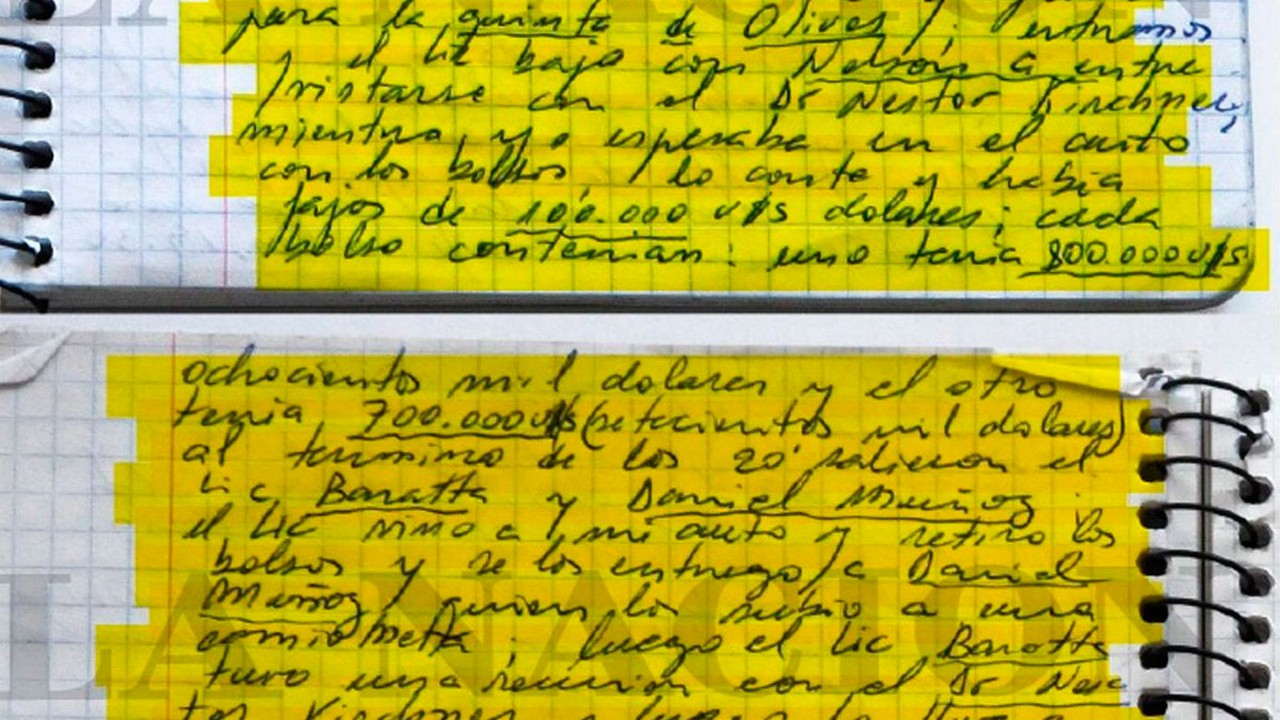 LA NACION
para la quinta de Olivos y; entramos
y el Lic bajo con Nelson a entre
/vistarse con el Dr Nestor Kirchner,
mientras yo esperaba en el auto
con los bolsos / lo conte y habia
fajos de 100.000 u$s dolares; cada
bolso contenian: uno tenia 800.000 u$s
ochocientos mil dolares y el otro
tenia 700.000 u$s (setecientos mil dolares)
al termino de los 20' salieron el
Lic Baratta y Daniel Muñoz.
el Lic vino a mi auto y retiro los
bolsos y se los entrego a Daniel
Muñoz quien los subio a una
camioneta; luego el Lic Baratta
tuvo una reunion con el Dr Nes
tor Kirchner y luego
LA NACION